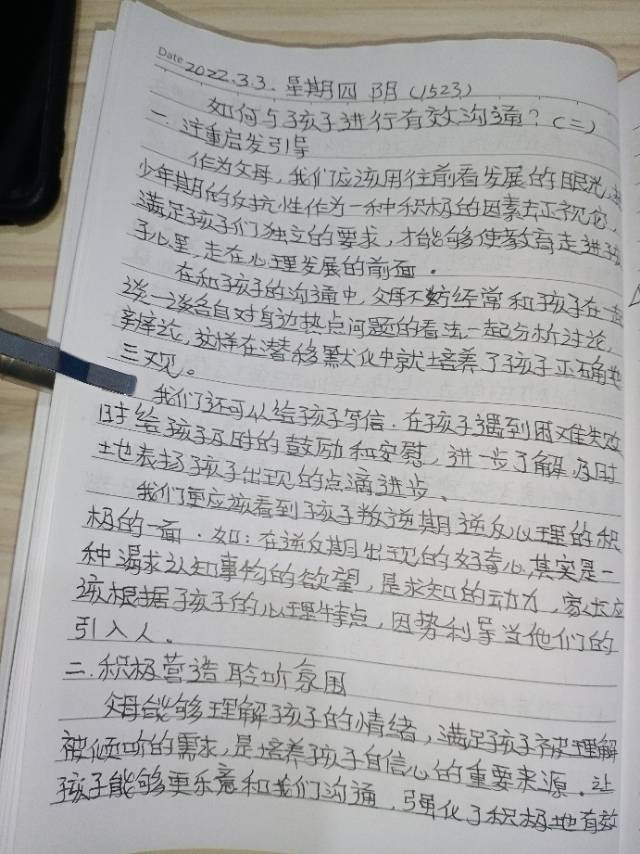 Date 2022.3.3. 星期四 阴 (1523)
如何与孩子进行有效沟通?(二)
一.注重启发引导
作为父母,我们应该用往前看发展的眼光,
少年期的反抗性作为一种积极的因素去正视它,
满足孩子们独立的要求,才能够使教育走进孩
子心里,走在心理发展的前面.
在和孩子的沟通中,父母不妨经常和孩子在一起
谈一谈各自对身边热点问题的看法一起分析讨论,
辩论,这样在潜移默化中就培养了孩子正确地
三观。
我们还可从给孩子写信.在孩子遇到困难失败
时给孩子及时的鼓励和安慰,进一步了解,及时
地表扬孩子出现的点滴进步.
我们更应该看到孩子叛逆期逆反心理的积
极的一面.如:在逆反期出现的好奇心,其实是一
种渴求认知事物的欲望,是求知的动力,家长应
该根据孩子的心理特点,因势利导当他们的
引入人。
二.积极营造聆听氛围
父母能够理解孩子的情绪,满足孩子被理解
被倾听的需求,是培养孩子自信心的重要来源.让
孩子能够更乐意和我们沟通,强化了积极地有效